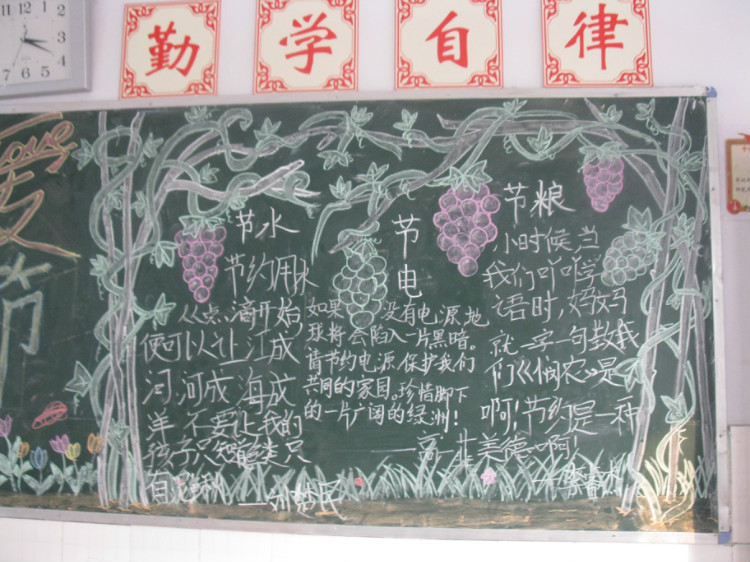 勤学自律
Love
爱
节
节水
节约用水
从点滴开始,
便可以让江成
河,河成海成
洋 不要让我的
孩子只知道
节电
如果 没有电源,地
球将会陷入一片黑暗.
请节约电源.保护我们
共同的家园。珍惜脚下
的一片广阔的绿洲!
节粮
小时候当
我们吖吖学
语时,妈妈
就一字一句教我
们《悯农》是
啊!节约是一种
美德啊!